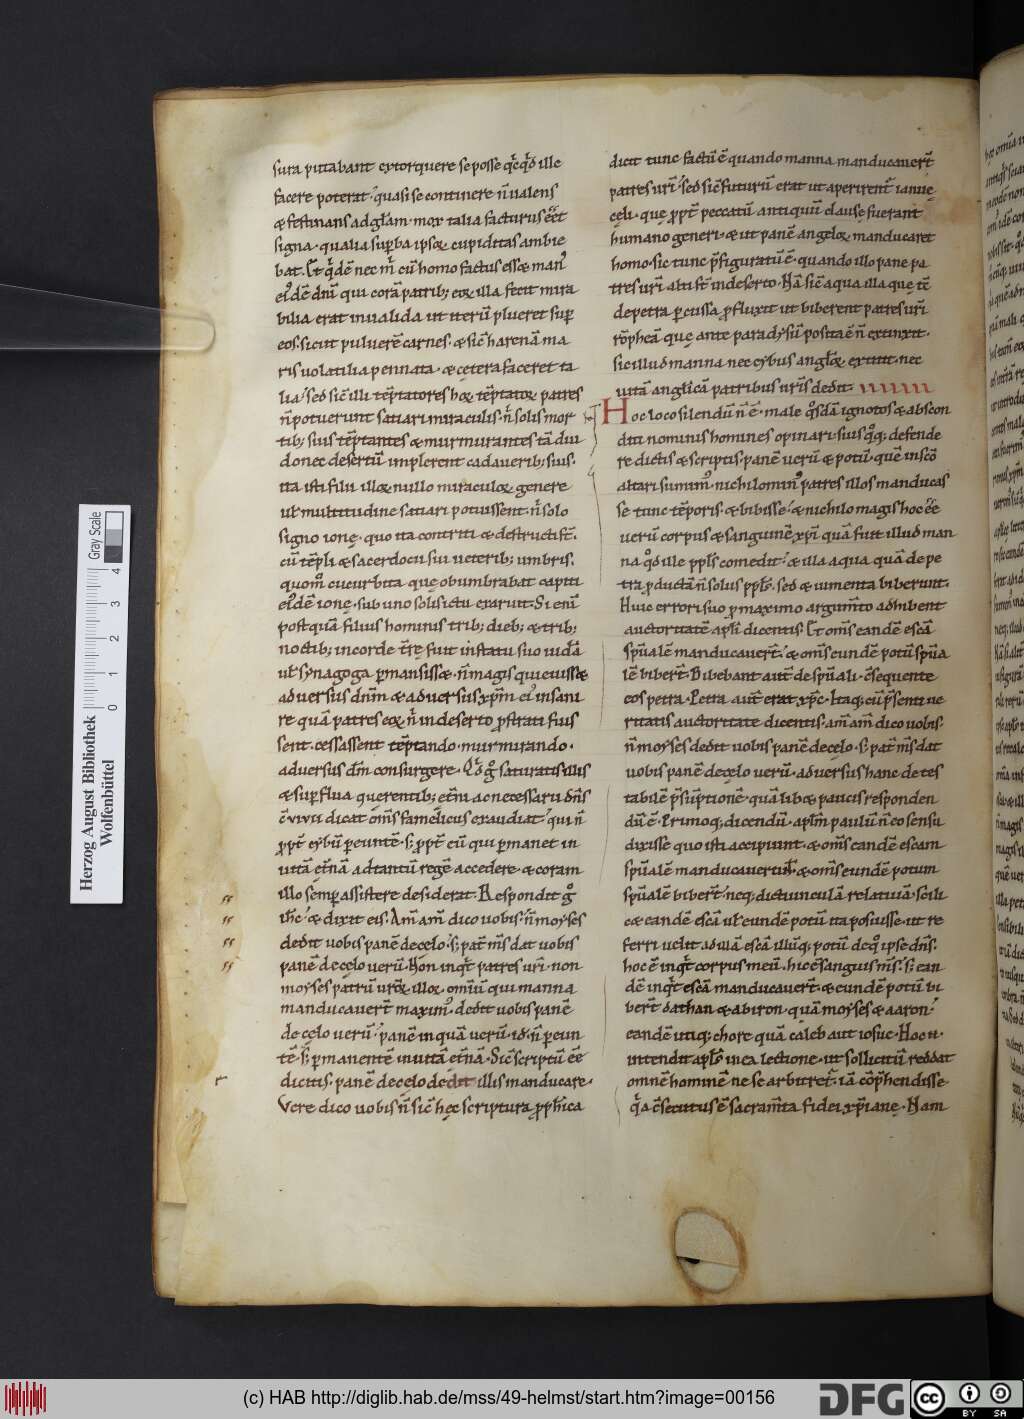 sura putabant extorquere se posse qͥcqͥd ille
facere poterat / quasi se continere n̄ ualens
& festinans ad gl̄am · mox talia facturus eēt
signa · qualia sup̄ba ipsoꝝ cupiditas ambie
bat. Et qͥdē nec mͥ cū homo factus ess&
eiꝰdē dn̄i qui corā patrib; eoꝝ illa fecit mira
bilia erat inualida ut iterū plueret sup̄
eos · sicut puluerē carnes · & sic̄ harenā ma
ris uolatilia pennata · & cetera faceret ta
lia / sed sic̄ illi tēptatores hoꝝ tēptatoꝝ patres
n̄ potuerunt satiari miraculis · nͥ solis mor
tib; suis tēptantes & murmurantes tā diu
donec desertū implerent cadauerib; suis ·
ita isti filii illoꝝ nullo miraculoꝝ genere
ul̄ multitudine satiari potuissent · nͥ solo
signo ione · quo ita contriti & destructi st̄ ·
cū tēpli & sacerdocii sui ueterib; umbris ·
quomͦ cucurbita que obumbrabat capiti
eiꝰdē ione · sub uno solis ictu exaruit. Si enī
postquā filius hominis trib; dieb; & trib;
noctib; in corde tr̄e fuit in statu suo iudā
ul̄ synagoga p̄mansiss& · n̄ magis quieuiss&
aduersus dn̄m & aduersus xp̄m eiꝰ insani
re quā patres eoꝝ nͥ in deserto p̄strati fuis
sent · cessassent tēptando · murmurando ·
aduersus dm̄ consurgere · Qͥd gͦ saturatis illis
& sup̄flua querentib; etn̄ ac necessarii dn̄s
c̄uiuii dicat om̄s famelicus exaudiat / qui n̄
p̄pt̄ cybū p̄euntē · s; p̄pt̄ eū qui p̄manet in
uitā et̄nā ad tantū regē accedere · & coram
illo semp̄ assistere desiderat. Respondit gͦ
ih̄c / & dixit eis. Am̄ am̄ dico uobis / n̄ moyses
dedit uobis panē de celo / s; pat̄ m̄s dat uobis
panē de celo uerū. Non inqt̄ patres ur̄i · non
moyses patrū ur̄oꝝ illoꝝ · omīū qui manna
manducauer̄t maximꝰ · dedit uobis panē
de celo uerū / panē inquā uerū · id · n̄ p̄eun
tē · s; p̄manentē in uitā et̄nā · Sic̄ scriptū ēē
dicitis · panē de celo dedit illis manducare ·
Vere dico uobis n̄ sic̄ hec scriptura p̄ph̄ica
dicit tunc factū ē quando manna manducauer̄t
patres ur̄i / sed sic̄ futurū erat ut aperirent̄ ianue
celi · que p̄pt̄ peccatū antiquū clause fuerant
humano generi · & ut panē angeloꝝ manducaret
homo · sic tunc p̄figuratū ē · quando illo pane pa
tres ur̄i aliti st̄ in deserto · Nā sic̄ aqua illa que tc̄
de petra p̄cussa p̄fluxit ut biberent patres ur̄i
rōpheā que ante paradysū posita ē n̄ extinxit ·
sic illud manna nec cybus angl̄oꝝ extitit · nec
uitā anglicā patribus ur̄is dedit ·
Hoc loco silendū n̄ ē · male qͦsdā ignotos & abscon
diti nominis homines opinari · suisqͦq; defende
re dictis & scriptis · panē uerū & potū · quē in scō
altari sumimꝰ · nichilominꝰ patres illos manducas
se tunc tēporis · & bibisse / & nichilo magis hoc ēē
uerū corpus & sanguinē xp̄i quā fuit illud man
na qͦd ille ppl̄s comedit / & illa aqua quā de pe
tra p̄ductā n̄ solus ppl̄s · sed & iumenta biberunt.
Huic errori suo p̄ maximo argum̄to adhibent
auctoritatē apl̄i dicentis. Et om̄s eandē escā
sp̄ualē manducauer̄t / & om̄s eundē potū sp̄ua
lē biber̄t. Bibebant aut̄ de sp̄uali · c̄sequente
eos petra · Petra aut̄ erat xp̄c · Itaq; cū p̄senti ue
ritatis auctoritate dicentis · am̄ am̄ dico uobis ·
n̄ moyses dedit uobis panē de celo · s; pat̄ m̄s dat
uobis panē de celo uerū · aduersus hanc detes
tabilē p̄sūptionē · quā liboꝝ paucis responden
dū ē · Primoq; dicendū · apl̄m paulū n̄ eo sensu
dixisse quo isti accipiunt · & om̄s eandē escam
sp̄ualē manducauerunt · & om̄s eundē potum
sp̄ualē biber̄t / neq; dictiunculā relatiuā · scili
c& eandē escā ul̄ eundē potū ita posuisse · ut re
ferri uelit ad illā escā illūq; potū de qͦ ipse dn̄s ·
hoc ē inqt̄ corpus meū · hic ē sanguis m̄s · s; ean
dē inqt̄ escā manducauer̄t · & eundē potū bi
ber̄t dathan & abiron · quā moyses & aaron /
eandē utiq; chore quā caleb aut iosue · Hoc n̄
intendit apl̄s in ea lectione · ut sollicitū reddat
omnē hominē ne se arbitret̄ · iā cōp̄hendisse
qͥa c̄secutus ē sacram̄ta fidei xp̄iane · Nam
Herzog August Bibliothek
Wolfenbüttel
Gray Scale
0 1 2 3 4
(c) HAB http://diglib.hab.de/mss/49-helmst/start.htm?image=00156
DFG
cc BY SA